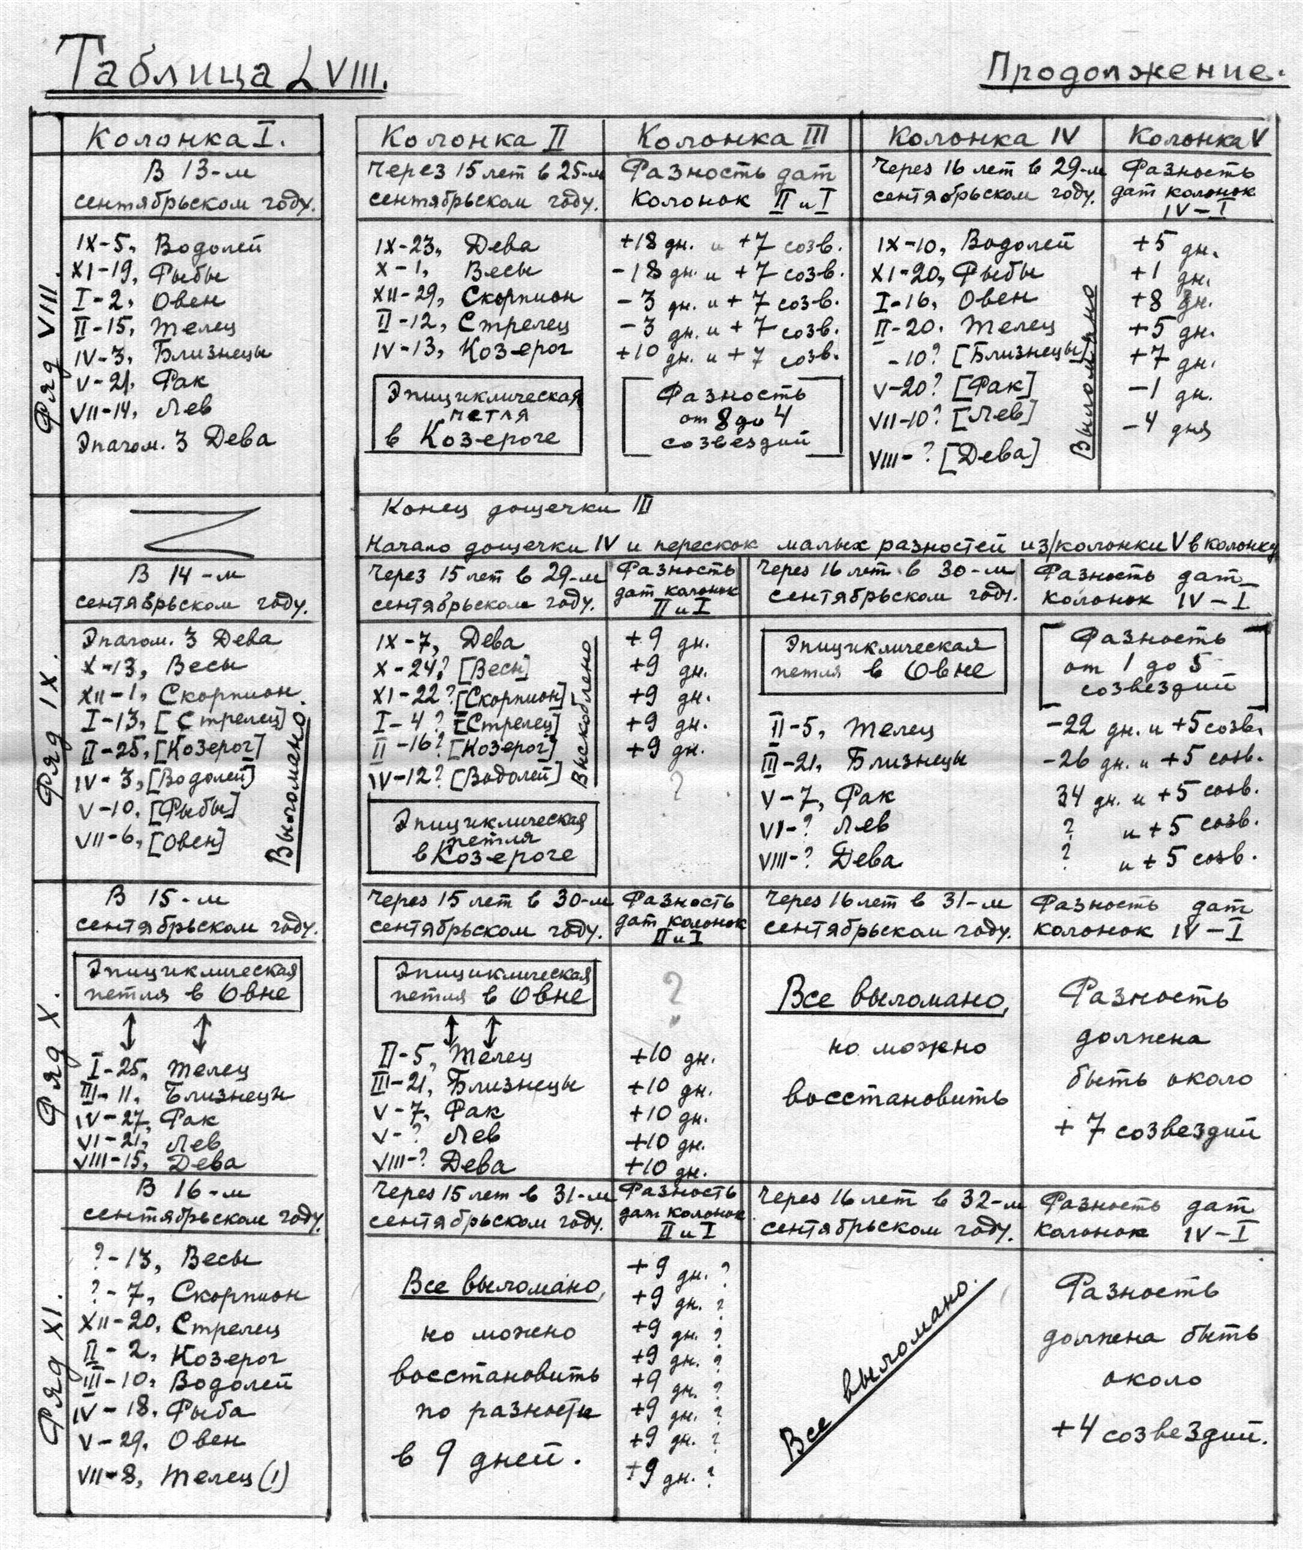 Таблица LVIII.
Продолжение.
Колонка I.
Колонка II
Колонка III
Колонка IV
Колонка V
Ряд VIII.
В 13-м
сентябрьском году.
Через 15 лет в 25-м
сентябрьском году.
Разность дат
Колонок II и I
Через 16 лет в 29-м
сентябрьском году.
Разность
дат колонок
IV-I
IX-5, Водолей
XI-19, Рыбы
I-2, Овен
II-15, Телец
IV-3, Близнецы
V-21, Рак
VII-14, Лев
Эпагом. 3 Дева
IX-23, Дева
X-1, Весы
XII-29, Скорпион
II-12, Стрелец
IV-13, Козерог
Эпициклическая
петля
в Козероге
+18 дн. и +7 созв.
-18 дн. и +7 созв.
-3 дн. и +7 созв.
-3 дн. и +7 созв.
+10 дн. и +7 созв.
[Разность
от 8 до 4
созвездий]
IX-10, Водолей
XI-20, Рыбы
I-16, Овен
II-20. Телец
-10? [Близнецы]
V-20? [Рак]
VII-10? [Лев]
VIII-? [Дева]
Выломано
+5 дн.
+1 дн.
+8 дн.
+5 дн.
+7 дн.
-1 дн.
-4 дня
Конец дощечки III
Начало дощечки IV и перескок малых разностей из колонки V в колонку
Ряд IX.
В 14-м
сентябрьском году.
Через 15 лет в 29-м
сентябрьском году.
Разность
дат колонок
II и I
Через 16 лет в 30-м
сентябрьском году.
Разность дат
колонок IV-I
Эпагом. 3 Дева
X-13, Весы
XII-1, Скорпион
I-13, [Стрелец]
II-25, [Козерог]
IV-3, [Водолей]
V-10. [Рыбы]
VII-6, [Овен]
Выломано.
IX-7, Дева
X-24? [Весы]
XI-22? [Скорпион]
I-4? [Стрелец]
II-16? [Козерог]
IV-12? [Водолей]
Выскоблено
Эпициклическая
петля
в Козероге
+9 дн.
+9 дн.
+9 дн.
+9 дн.
+9 дн.
?
Эпициклическая
петля в Овне
II-5, Телец
III-21, Близнецы
V-7, Рак
VI-? Лев
VIII-? Дева
[Разность
от 1 до 5
созвездий]
-22 дн. и +5 созв.
-26 дн. и +5 созв.
34 дн. и +5 созв.
? и +5 созв.
? и +5 созв.
Ряд X.
В 15-м
сентябрьском году.
Через 15 лет в 30-м
сентябрьском году.
Разность
дат колонок
II и I
Через 16 лет в 31-м
сентябрьском году.
Разность дат
колонок IV-I
Эпициклическая
петля в Овне
I-25, Телец
III-11, Близнецы
IV-27, Рак
VI-21, Лев
VIII-15, Дева
Эпициклическая
петля в Овне
II-5, Телец
III-21, Близнецы
V-7, Рак
V-? Лев
VIII-? Дева
?
+10 дн.
+10 дн.
+10 дн.
+10 дн.
+10 дн.
Все выломано,
но можно
восстановить
Разность
должна
быть около
+7 созвездий
Ряд XI.
В 16-м
сентябрьском году.
Через 15 лет в 31-м
сентябрьском году.
Разность
дат колонок
II и I
Через 16 лет в 32-м
сентябрьском году.
Разность дат
колонок IV-I
?-13, Весы
?-7, Скорпион
XII-20, Стрелец
II-2, Козерог
III-10, Водолей
IV-18, Рыба
V-29, Овен
VII-8, Телец (1)
Все выломано,
но можно
восстановить
по разности
в 9 дней.
+9 дн. ?
+9 дн. ?
+9 дн. ?
+9 дн. ?
+9 дн. ?
+9 дн. ?
+9 дн. ?
+9 дн. ?
Все выломано.
Разность
должна быть
около
+4 созвездий.